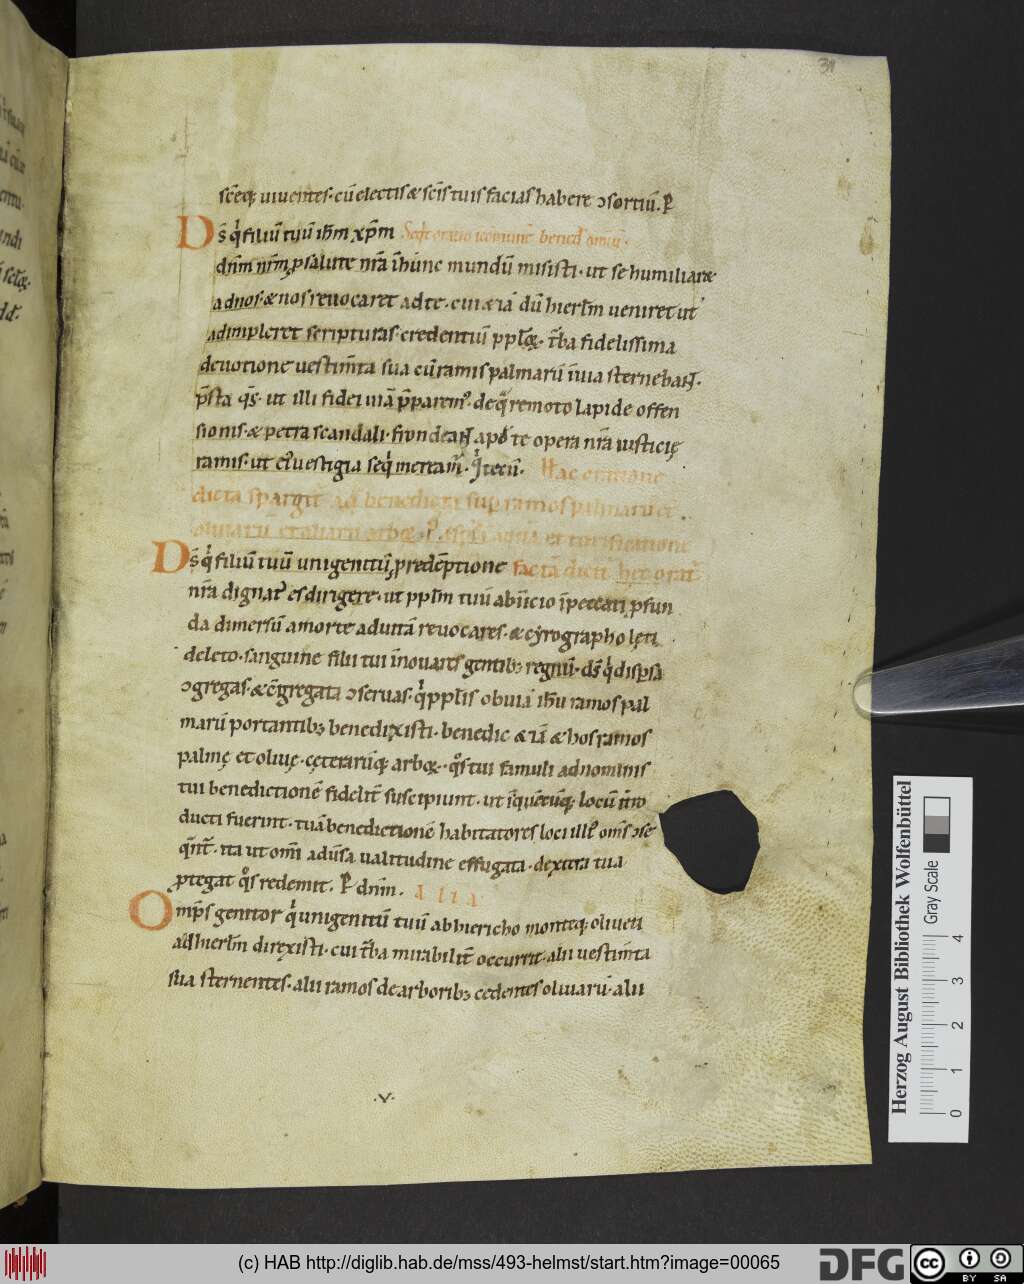 31
sc̄eq; uiuentes· cū electis & scīs tuis facias habere ↄsortiū. P̲
Ds̄ q̇ filiū tuū ih̄m xp̄m Seq̄t oratio
dn̄m nr̄m p salute nr̄a ī hunc mundū misisti· ut se humiliar&
ad nos· & nos reuocaret ad te· cui & iā dū hierl̄m ueniret ut
adimpleret scripturas· credentiū ppl̄oꝝ· t̄ba fidelissima
deuotione uestim̄ta sua cū ramis palmarū ī uia sternebaɴt·
p̄sta q̄s· ut illi fidei uiā p̄parem᷒· de q̇ remoto lapide offen
sionis· & petra scandali· frondeaɴt apđ te opera nr̄a iusticię
ramis· ut ei᷒ uestigia seq̇ meream̄· q̇ tecū· Hac oratione
dicta spargit̄ aq̄ benedicta sup ramos palmarū et
Ds̄ q̇ filiū tuū unigenitū p redēptione facta dicit̄ hec orat̄
nr̄a dignat᷒ es dirigere· ut ppl̄m tuū ab inicio ī peccati pfun
da dimersū a morte ad uitā reuocares· & cyrographo lęti
deleto· sanguine filii tui īnouares gentib; regnū· ds̄ q̇ dispsa
ↄgregas· & cōgregata ↄseruas· q̇ ppl̄is obuiā ih̄u ramos pal
marū portantib; benedixisti· benedic & iā & hos ramos
palmę et oliuę· cęterarūq; arboꝝ· q̊s tui famuli ad nominis
tui benedictionē fidelit̄ suscipiunt· ut ī quēcūq; locū ītro
ducti fuerint· tuā benedictionē habitatores loci illi᷒ om̄s ↄse
q̄nt̄· ita ut om̄i aduersa ualitudine effugata· dextera tua
ptegat q̊s redemit. P̲ dn̄m. ALIA
Omp̄s genitor q̇ unigenitū tuū ab hiericho monteq; oliueti
ad hierl̄m direxisti· cui t̄ba mirabilit̄ occurrit· alii uestim̄ta
sua sternentes· alii ramos de arborib; cedentes oliuarū· alii
·v·
Herzog August Bibliothek Wolfenbüttel
Gray Scale
0 1 2 3 4
(c) HAB http://diglib.hab.de/mss/493-helmst/start.htm?image=00065
DFG
cc BY SA